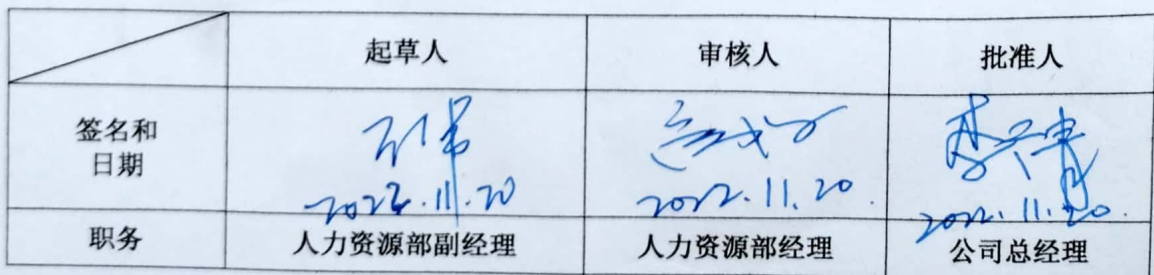 起草人 审核人 批准人
签名和
日期
2022.11.20 2022.11.20 2022.11.20
职务 人力资源部副经理 人力资源部经理 公司总经理